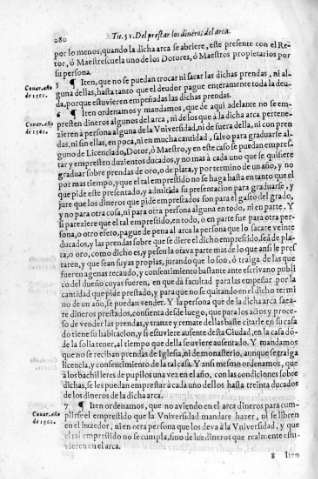 280 Tit. 51. Del prestar los dineros del arca.
por lo menos, quando la dicha arca se abriere, este presente con el Re-
tor, ó Maestrescuela uno de los Dotores, ó Maestros propietarios por
su persona.
5 ¶ Iten, que no se puedan trocar ni sacar las dichas prendas, ni al-
guna dellas, hasta tanto que el deudor pague enteramente toda la deu-
da, por que estuvieren empeñadas las dichas prendas.
6 ¶ Iten ordenamos y mandamos, que de aqui adelante no se em-
presten dineros algunos del arca, ni de los que á la dicha arca pertene-
zieren à persona alguna de la Universidad, ni de fuera della, ni con pren-
das, ni sin ellas, en poca, ni en mucha cantidad, salvo para graduarse al-
guno de Licenciado, Dotor, ò Maestro, y en este caso se puedan empres-
tar y empresten dozientos ducados, y no mas à cada uno que se quisiere
graduar sobre prendas de oro, ò de plata, y por termino de un año, y no
por mas tiempo, y que el tal emprestido no se haga hasta en tanto que el
que pide este presentado, y admitida su presentacion para graduarse, y
jure que los dineros que pide emprestados son para el gasto del grado,
y no para otra cosa, ni para otra persona alguna en todo, ni en parte. Y
si pareziere que el tal emprestido, en todo, ò en parte fue para otra per-
sona, o otro efeto, pague de pena al arca la persona que lo sacare veinte
ducados, y las prendas sobre que se diere el dicho emprestido, sea de pla-
ta, o oro, como dicho es, y pesen la otava parte mas de lo que ansi le pres
taren, y que sean suyas propias, jurando que lo son, ó traiga de las que
fueren agenas recaudo, y consentimiento bastante ante escrivano publi
co del dueño cuyas fueren, en que da facultad para las empeñar por la
cantidad que pide prestado, y para que no se quitando en el dicho termi
no de un año, se puedan vender. Y la persona que de la dicha arca saca-
re dineros prestados, consienta desde luego, que para los actos y proce-
so de vender las prendas, y trance y remate dellas baste citarle en su casa
do tiene su habitacion, y si estuviere ausente desta Ciudad, en la casa do-
de la solia tener, al tiempo que della se oviere ausentado. Y mandamos
que no se reciban prendas de Iglesia, ni de monasterio, aunque se traiga
licencia, y consentimiento de la tal casa. Y ansi mesmo ordenamos, que
á los bachilleres de pupilos una vez en el año, con las condiciones sobre
dichas, se les puedan emprestar á cada uno dellos hasta treinta ducados
de los dineros de la dicha arca.
7 ¶ Iten ordenamos, que no aviendo en el arca dineros para cum-
plir el emprestido que la Universidad mandare hazer, ni se libren
en el hazedor, ni en otra persona que los deva à la Vniversidad, y que
el tal emprestido no se cumpla, sino de los dineros que realmente estu-
vieren en el arca.
Iten